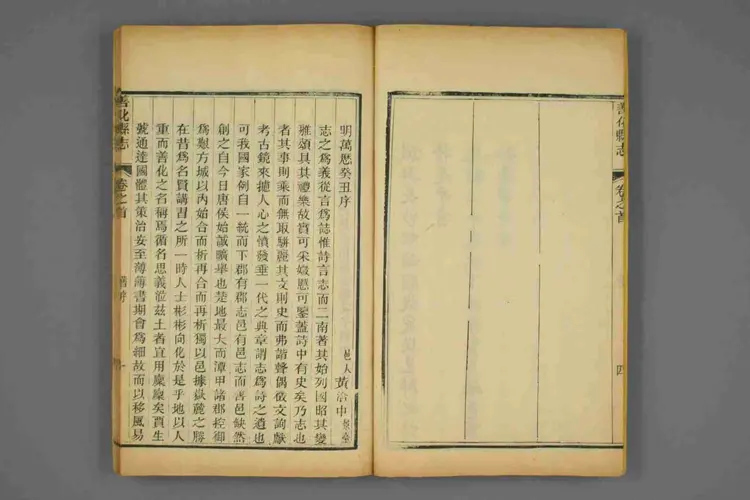 明萬歷癸丑序
邑人黃洽中
志之爲義從言爲誌惟詩言志而二南著其始列國昭其變
雅頌具其禮樂故寶可采媺慝可鑒蓋詩中有史矣乃志也
者其事則乘而無取駢麗其文則史而弗諧聲偶徵文詢獻
考古鏡來攄人心之憤發垂一代之典章謂志爲詩之遺也
可我國家例自一統而下郡有郡志邑有邑志而善邑缺然
創之自今日唐侯始誠曠舉也楚地最大而潭甲諸郡控御
爲艱方城以丙始合而析再合而再析獨以邑據嶽麓之勝
在昔爲名賢講習之所一時人士彬彬向化於是乎地以人
重而善化之名稱焉循名思義涖茲土者宜用糜線矣賈生
號通達國體其策治安至薄薄書期會爲細故而以移風易
善化縣志
卷之首
一
善化縣志
卷之首
四